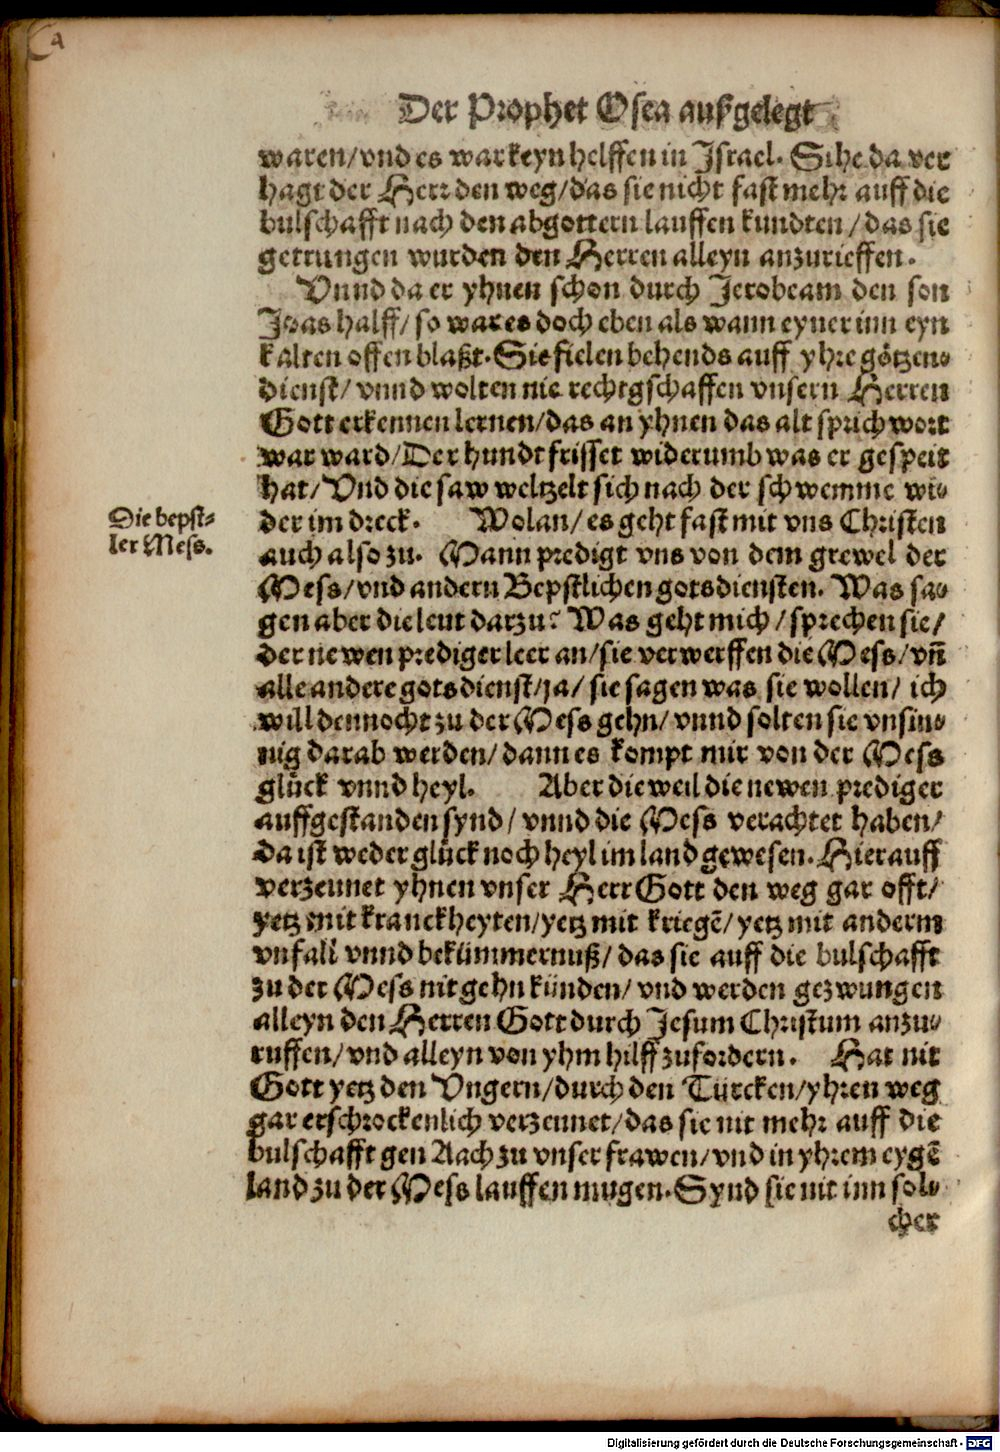 Der Prophet Osea außgelegt
waren/vnd es war keyn helffen in Israel. Sihe da ver
hagt der Herr den weg/das sie nicht fast mehr auff die
bulschafft nach den abgottern lauffen kundten/das sie
getrungen wurden den Herren alleyn anzurieffen.
Vnnd da er yhnen schon durch Jerobeam den son
Joas halff/so war es doch eben als wann eyner inn eyn
kalten offen blaßt. Sie fielen behends auff yhre götzen-
dienst/vnnd wolten nie rechtgschaffen vnsern Herren
Gott erkennen lernen/das an yhnen das alt sprichwort
war ward/Der hundt frisset widerumb was er gespeit
hat/Vnd die saw weltzelt sich nach der schwemme wi-
Die bepst-
ler Mess.
der im dreck. Wolan/es geht fast mit vns Christen
auch also zu. Mann predigt vns von dem grewel der
Mess/vnd andern Bepstlichen gotsdiensten. Was sa-
gen aber die leut darzu? Was geht mich/sprechen sie/
der newen prediger leer an/sie verwerffen die Mess/vn̄
alle andere gotsdienst/ja/sie sagen was sie wollen/ich
will dennocht zu der Mess gehn/vnnd solten sie vnsin-
nig darab werden/dann es kompt mir von der Mess
glück vnnd heyl. Aber dieweil die newen prediger
auffgestanden synd/vnnd die Mess verachtet haben/
da ist weder glück noch heyl im land gewesen. Hierauff
verzeunet yhnen vnser Herr Gott den weg gar offt/
yetz mit kranckheyten/yetz mit kriegē/yetz mit anderm
vnfall vnnd bekümmernuß/das sie auff die bulschafft
zu der Mess nit gehn künden/vnd werden gezwungen
alleyn den Herren Gott durch Jesum Christum anzu-
ruffen/vnd alleyn von yhm hilff zufordern. Hat nit
Gott yetz den Vngern/durch den Türcken/yhren weg
gar erschrockenlich verzeunet/das sie nit mehr auff die
bulschafft gen Aach zu vnser frawen/vnd in yhrem eygē
land zu der Mess lauffen mugen. Synd sie nit inn sol-
cher
Digitalisierung gefördert durch die Deutsche Forschungsgemeinschaft - DFG